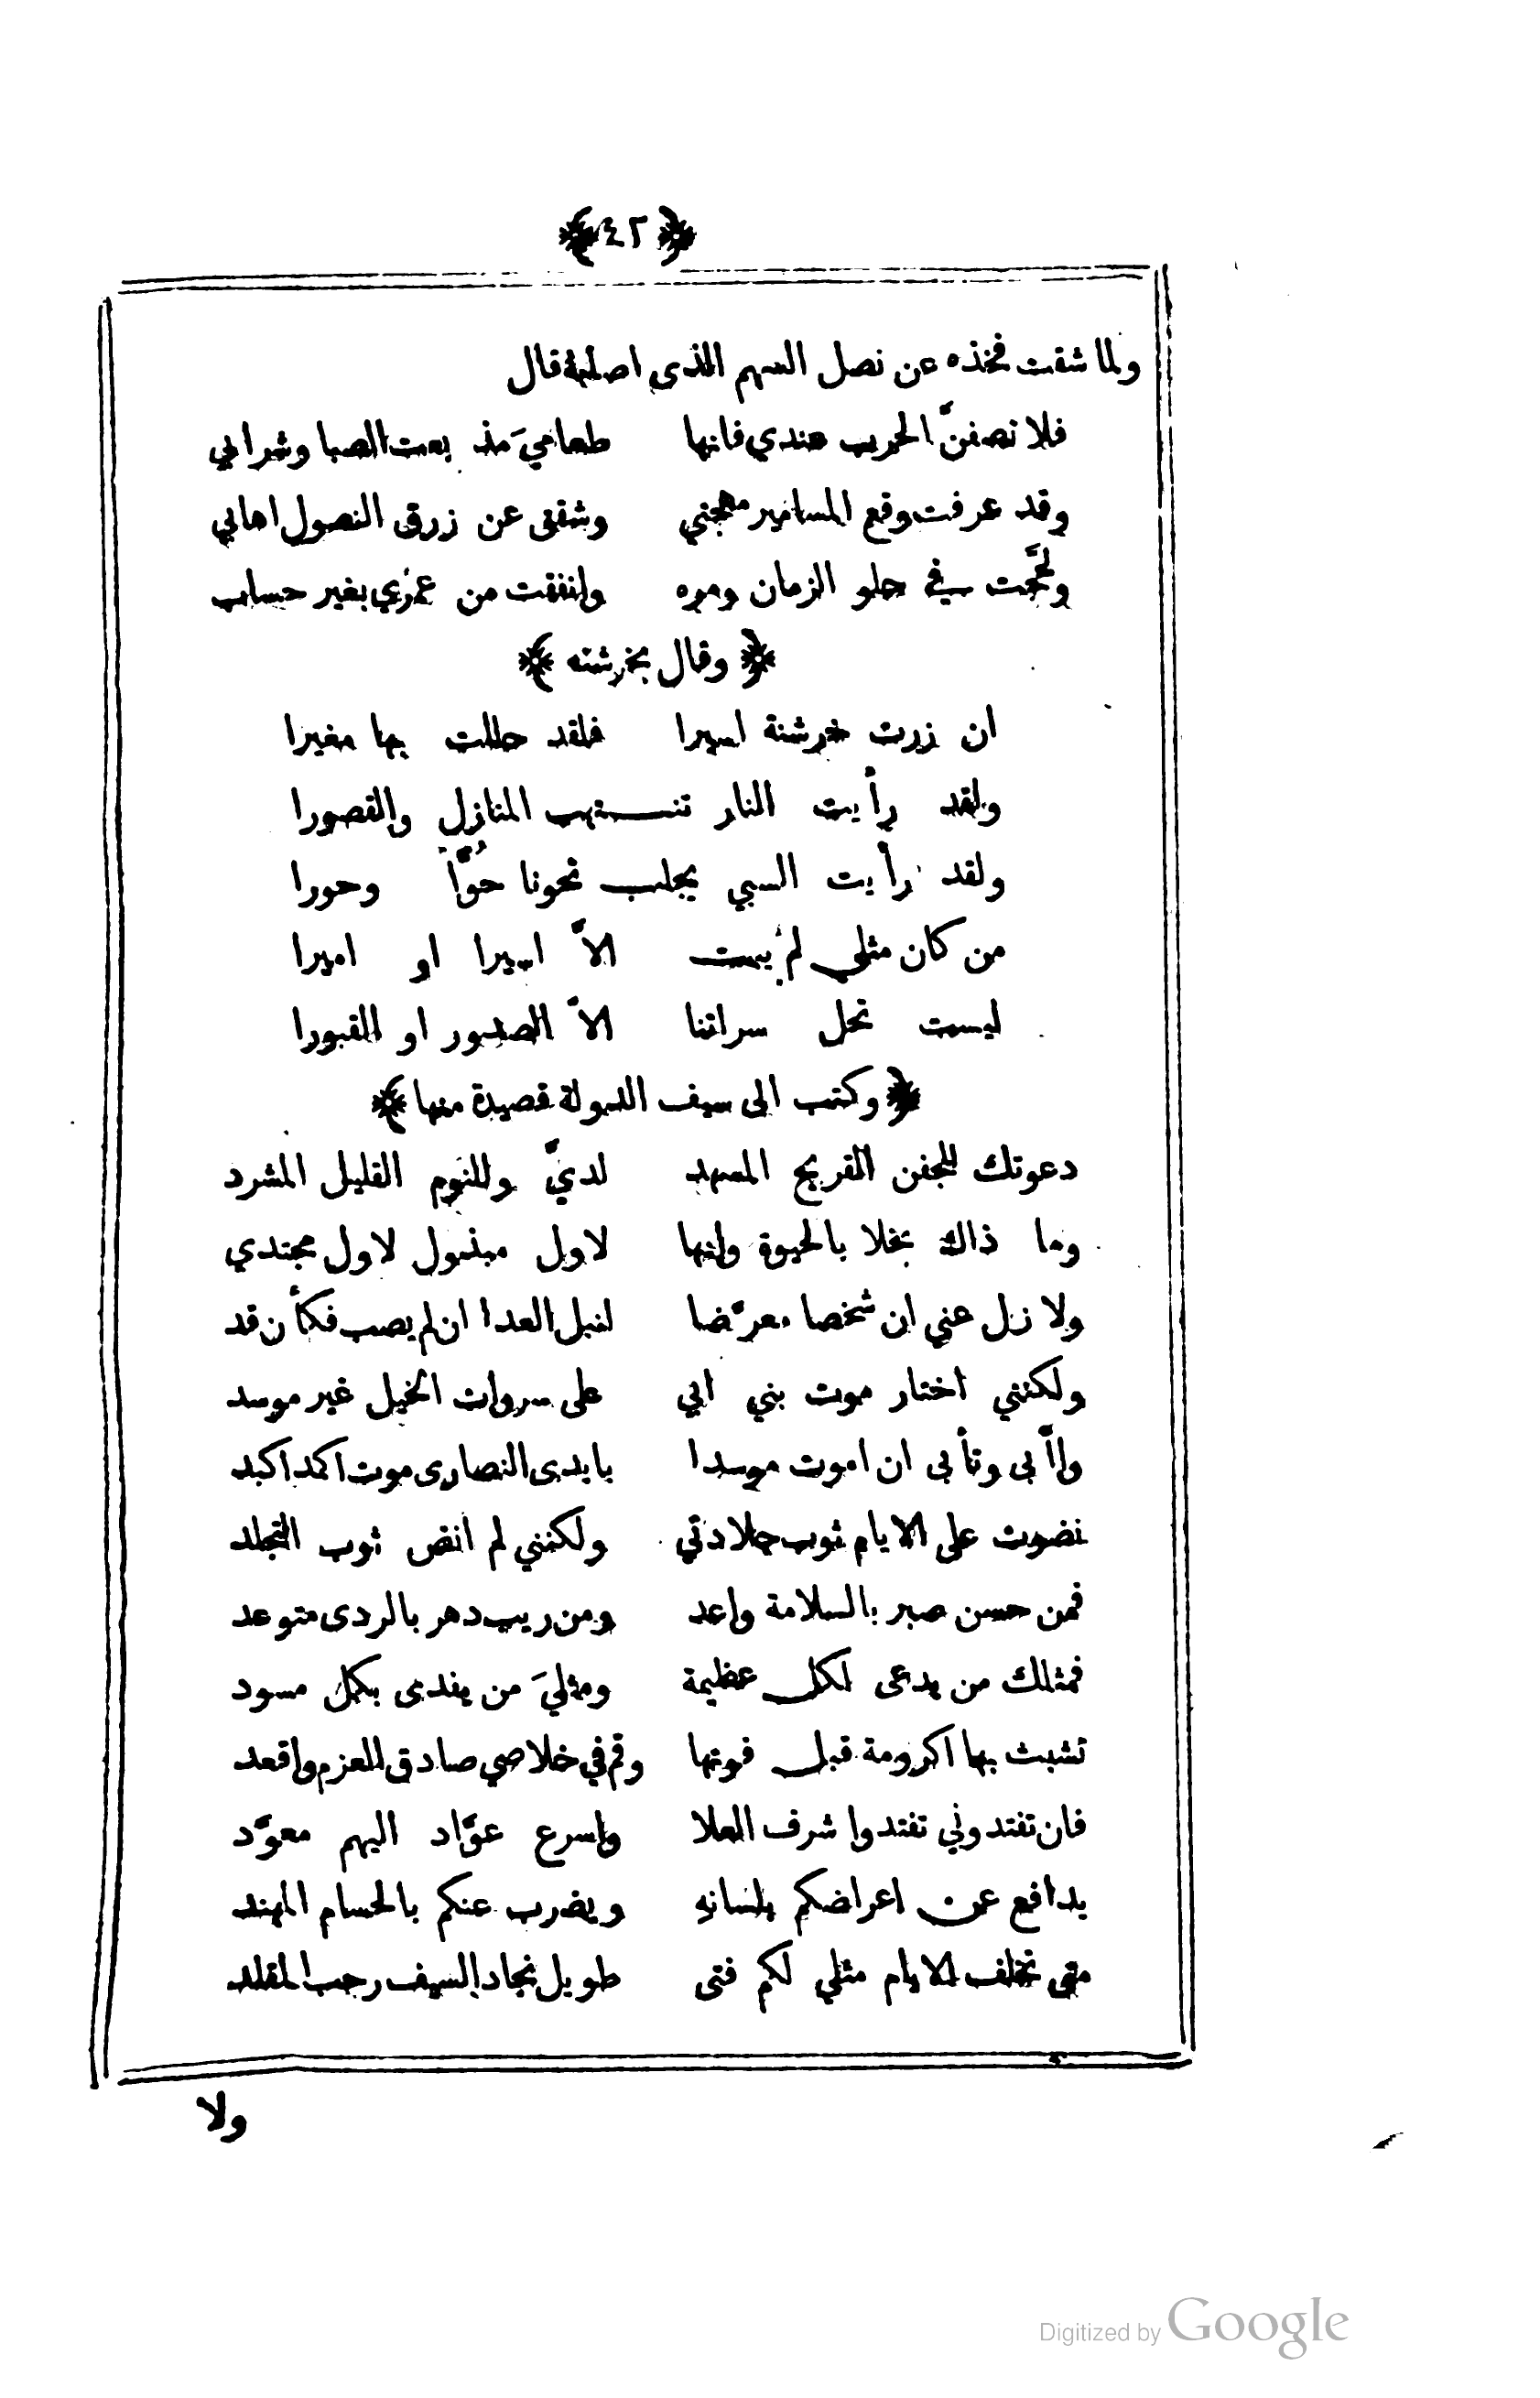 ﴿٤٢﴾
ولما شقت فخذه عن نصل السهم الذى اصابه قال
فلا تصفنَّ الحرب عندي فانها طعاميَ مذ بعت الصبا وشرابي
وقد عرفت وقع المسامير مهجتي وشقق عن زرق النصول اهابي
ولجَّجت في حلو الزمان ومره وانفقت من عمري بغير حساب
﴿ وقال بخرشنه ﴾
ان زرت خرشنة اسيرا فلقد حللت بها مغيرا
ولقد رأيت النار تنـتهب المنازل والقصورا
ولقد رأيت السبي يجلب نحونا حُوّاً وحورا
من كان مثلي لم يبت الاّ اسيرا او اميرا
ليست تحل سراتنا الاّ الصدور او القبورا
﴿ وكتب الى سيف الدولة قصيدة منها ﴾
دعوتك للجفن القريح المسهد لديَّ وللنوم القليل المشرد
وما ذاك بخلا بالحيوة وانها لاول مبذول لاول مجتدي
ولا زل عني ان شخصا معرّضا لنبل العدا ان لم يصب فكأن قد
ولكنني اختار موت بني ابي على سروات الخيل غير موسد
وآبى وتأبى ان اموت موسدا بايدى النصارى موت اكمد اكبد
نضوت على الايام ثوب جلادتي ولكنني لم انض ثوب التجلد
فمن حسن صبر بالسلامة واعد ومن ريب دهر بالردى متوعد
فمثلك من يدعى لكل عظيمة ومثليَ من يفدى بكل مسود
تشبث بها اكرومة قبل فوتها وقم في خلاصي صادق العزم واقعد
فان تفتدوني تفتدوا شرف العلا واسرع عوّاد اليهم معوّد
يدافع عن اعراضكم بلسانه ويضرب عنكم بالحسام المهند
متى تخلف الايام مثلي لكم فتى طويل نجاد السيف رحب المقلد
ولا
Digitized by Google